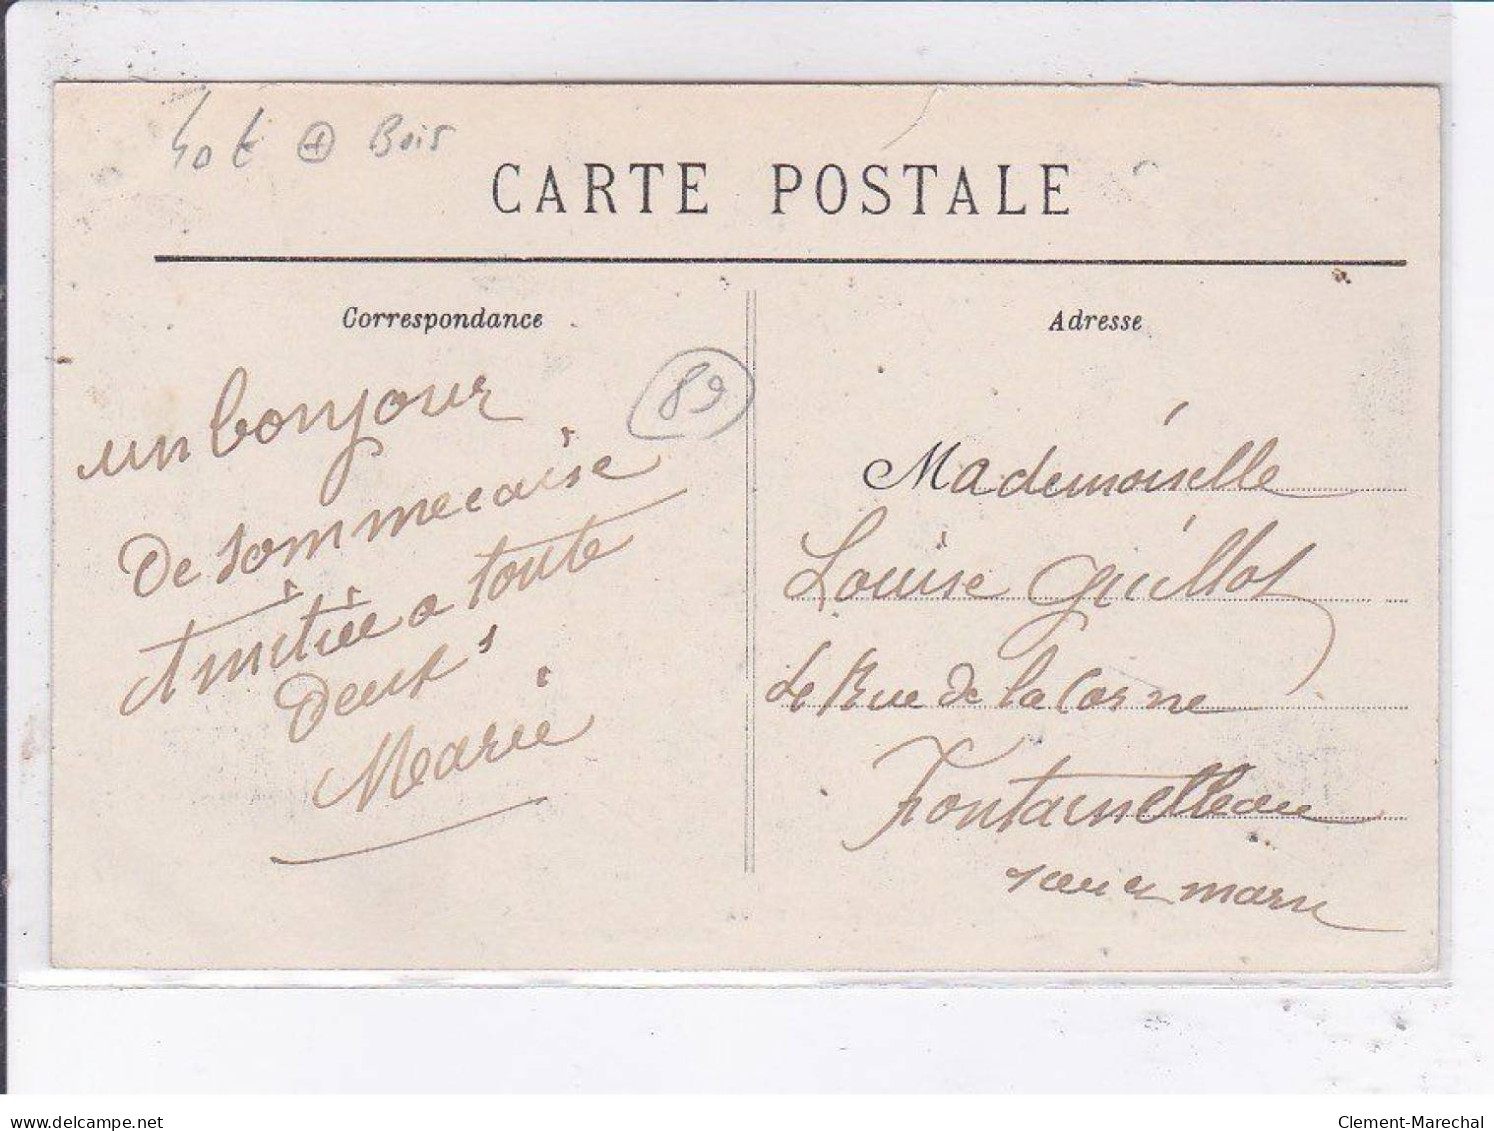 40 € + Bois
CARTE POSTALE
Correspondance
Adresse
89
un bonjour
de sommecaise
Amitiée a toute
deux
Marie
Mademoiselle
Louise Guillot
Rue de la Corne
Fontainelleau
marne
www.delcampe.net
Clement-Marechal